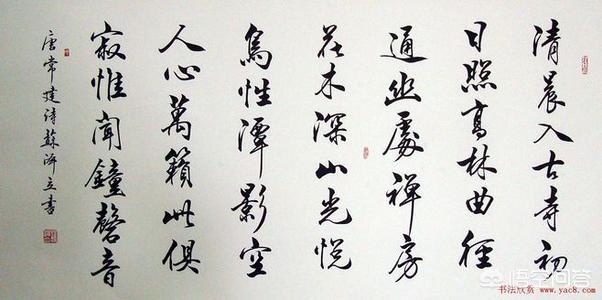 清晨入古寺初
日照高林曲徑
通幽處禪房
花木深山光悦
鳥性潭影空
人心萬籟此俱
寂惟聞鐘磬音
唐常建诗蘇立書
悟空问答
书法欣赏 www.yac8.com